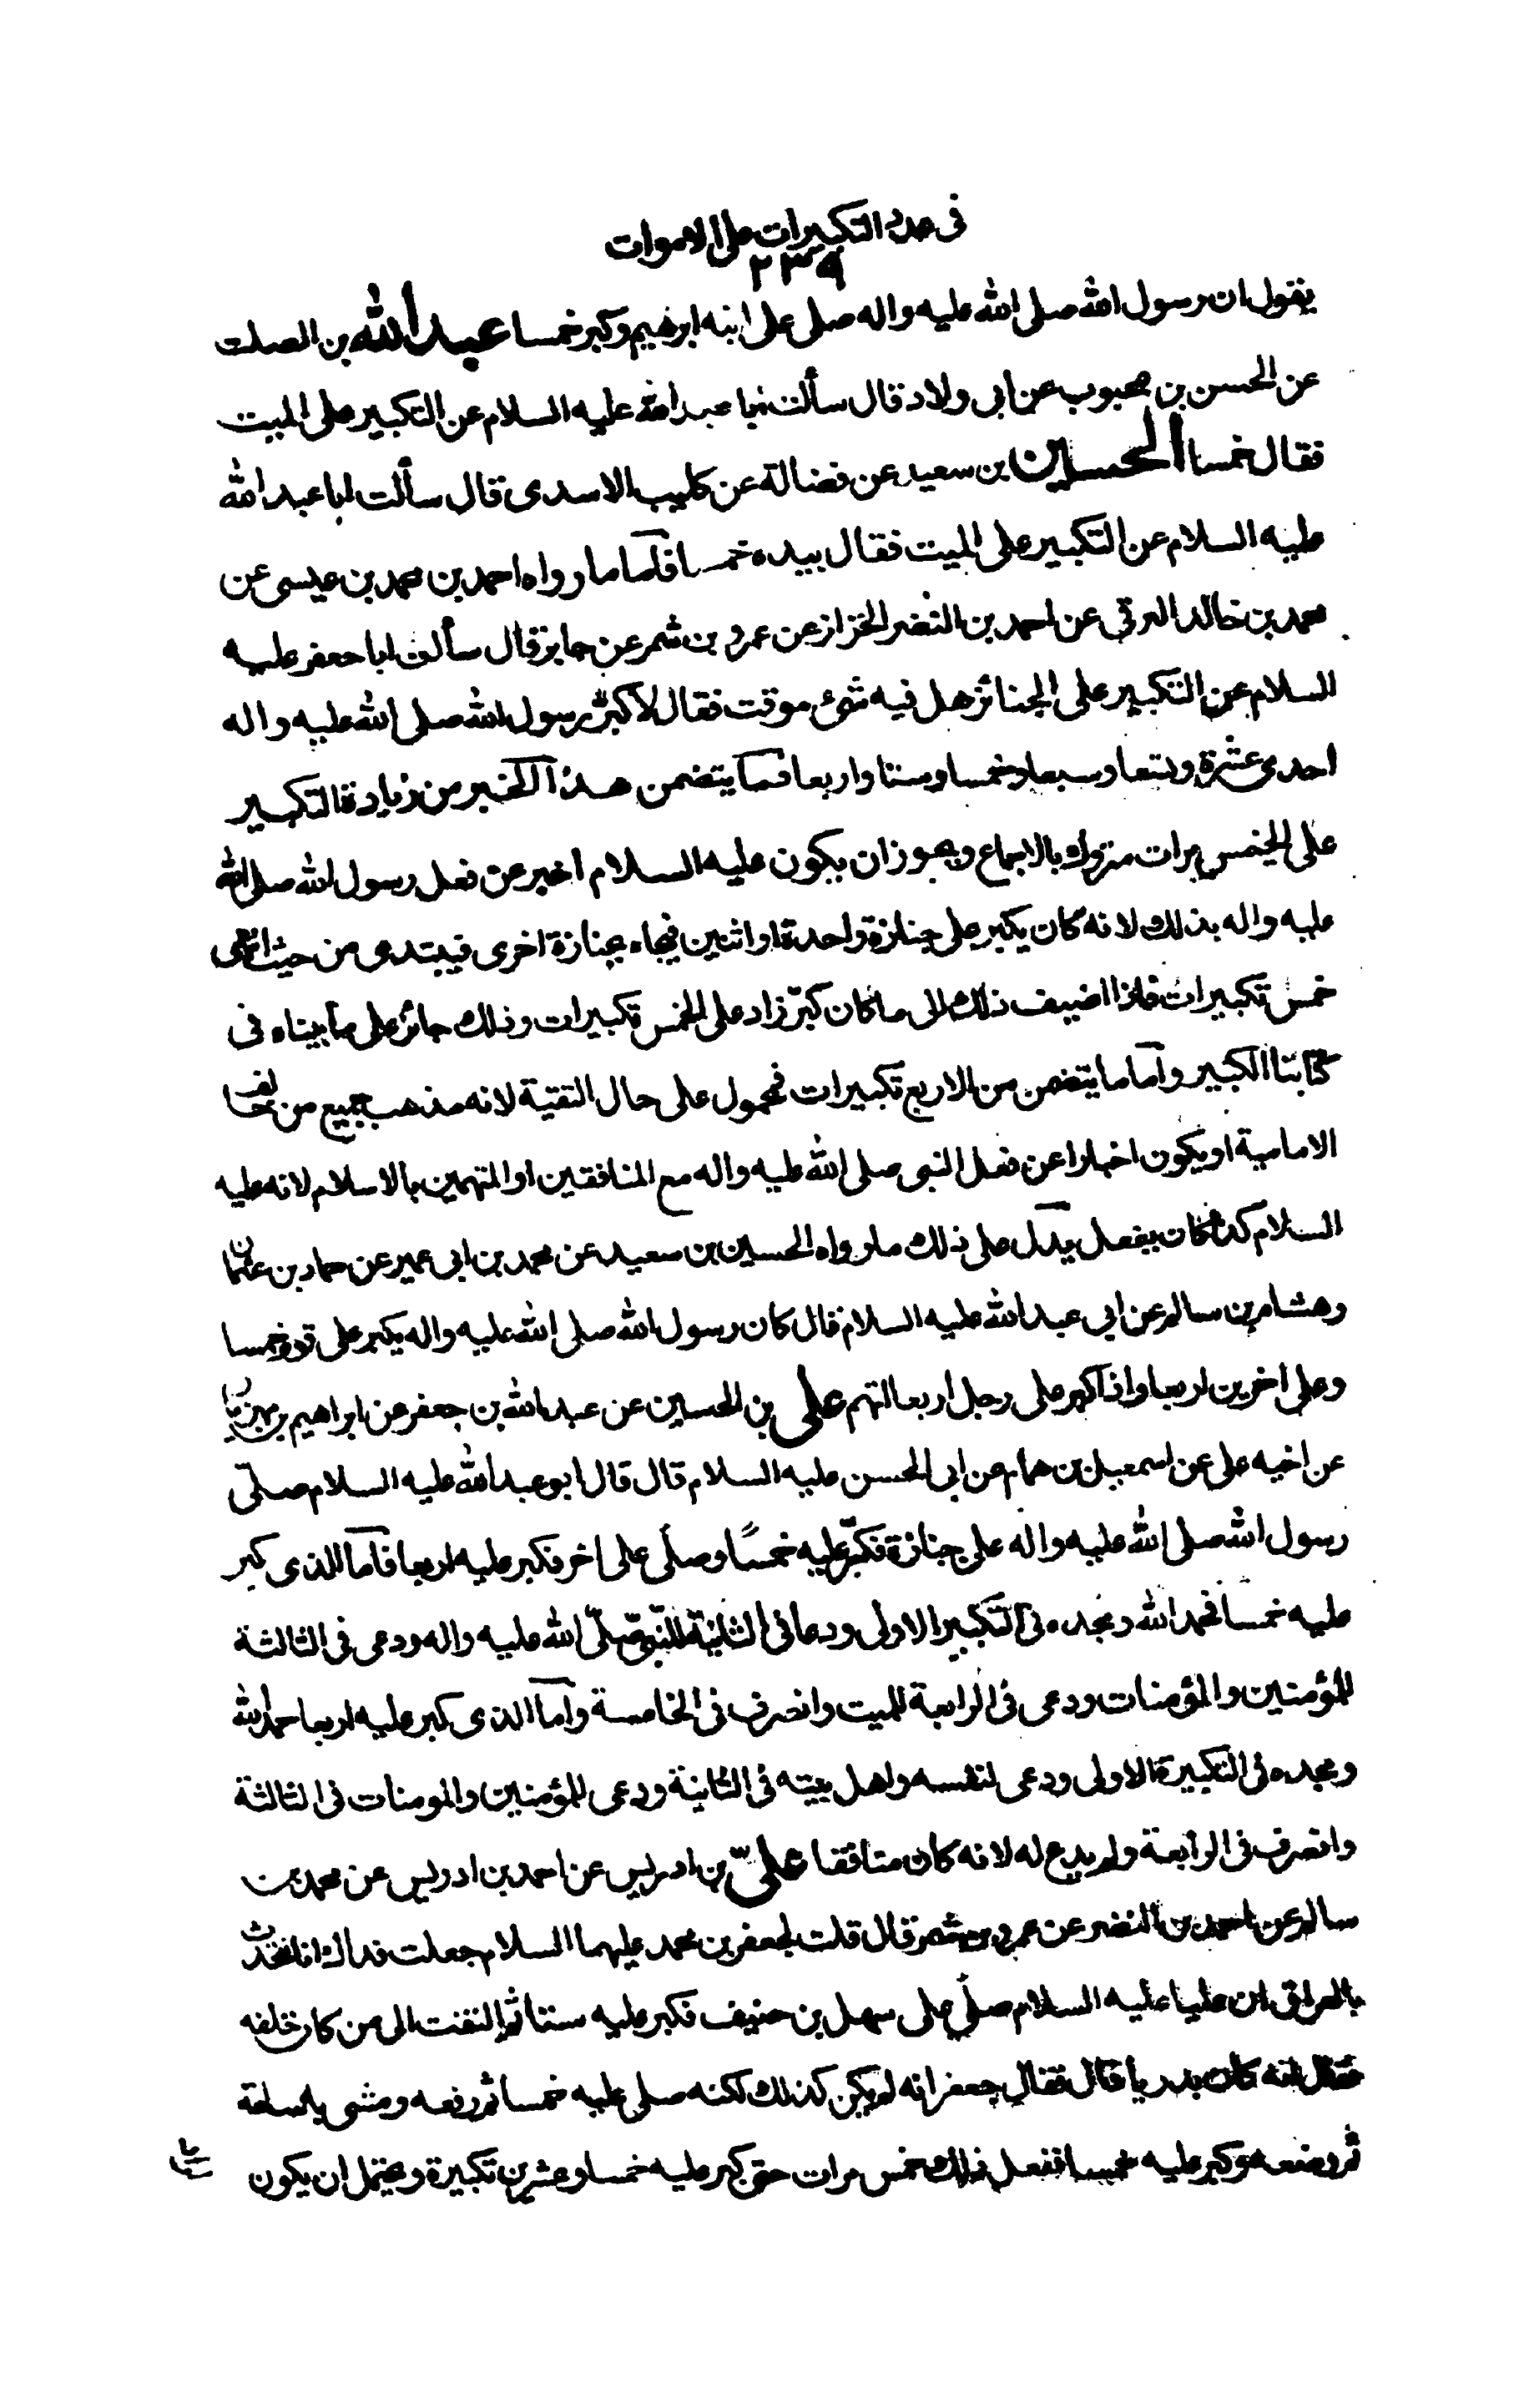 فى عدد التكبيرات على الاموات
٢٣٩
يقول ان رسول الله صلى الله عليه واله صلى على ابنه ابرهيم وكبر خمسا عبد الله بن الصلت
عن الحسن بن محبوب عن ابى ولاد قال سألت ابا عبد الله عليه السلام عن التكبير على الميت
فقال خمسا الحسين بن سعيد عن فضالة عن كليب الاسدى قال سألت ابا عبد الله
عليه السلام عن التكبير على الميت فقال بيده خمسا فاما ما رواه احمد بن محمد بن عيسى عن
محمد بن خالد البرقى عن احمد بن النضر الخزاز عن عمرو بن شمر عن جابر قال سألت ابا جعفر عليه
السلام عن التكبير على الجنائز هل فيه شئ موقت فقال لا كبّر رسول الله صلى الله عليه واله
احدى عشرة وتسعا وسبعا وخمسا وستا واربعا فما يتضمن هذا الخبر من زيادة التكبير
على الخمس مرات متروك بالاجماع ويجوز ان يكون عليه السلام اخبر عن فعل رسول الله صلى الله
عليه واله بذلك لانه كان يكبر على جنازة واحدة او اثنين فيجاء بجنازة اخرى فيبتدى من حيث انتهى
خمس تكبيرات فاذا اضيف ذلك الى ما كان كبّر زاد على الخمس تكبيرات وذلك جائز على ما بيناه فى
كتابنا الكبير واما ما يتضمن من الاربع تكبيرات فمحمول على حال التقية لانه مذهب جميع من خالف
الامامية او يكون اخبارا عن فعل النبى صلى الله عليه واله مع المنافقين او المتهمين بالاسلام لانه عليه
السلام كذا كان يفعل يدل على ذلك ما رواه الحسين بن سعيد عن محمد بن ابى عمير عن حماد بن عثمان
وهشام بن سالم عن ابى عبد الله عليه السلام قال كان رسول الله صلى الله عليه واله يكبر على قوم خمسا
وعلى اخرين اربعا واذا كبر على رجل اربعا اتهم على بن الحسين عن عبد الله بن جعفر عن ابراهيم بن مهزيار
عن اخيه على عن اسمعيل بن همام عن ابى الحسن عليه السلام قال قال ابو عبد الله عليه السلام صلّى
رسول الله صلى الله عليه واله على جنازة فكبّر عليه خمسًا وصلّى على اخر فكبر عليه اربعا فاما الذى كبر
عليه خمسا فحمد الله ومجده فى التكبير الاولى ودعا فى الثانية للنّبىّ صلّى الله عليه واله ودعى فى الثالثة
للمؤمنين والمؤمنات ودعى فى الرابعة للميت وانصرف فى الخامسة واما الذى كبر عليه اربعا حمد الله
ومجده فى التكبيرة الاولى ودعى لنفسه واهل بيته فى الثانية ودعى للمؤمنين والمومنات فى الثالثة
وانصرف فى الرابعة ولم يدع له لانه كان منافقا علىّ بن ادريس عن احمد بن ادريس عن محمد بن
سالم عن احمد بن النضر عن عمرو بن شمر قال قلت لجعفر بن محمد عليهما السلام جعلت فداك انا نتحدث
بالعراق ان عليا عليه السلام صلّى على سهل بن حنيف فكبر عليه ستا ثم التفت الى من كان خلفه
فقال انه كان بدريا قال فقال جعفر انه لم يكن كذلك لكنه صلى عليه خمسا ثم رفعه ومشى به ساعة
ثم وضعه وكبر عليه خمسا ففعل ذلك خمس مرات حتى كبر عليه خمسا وعشرين تكبيرة ويحتمل ان يكون